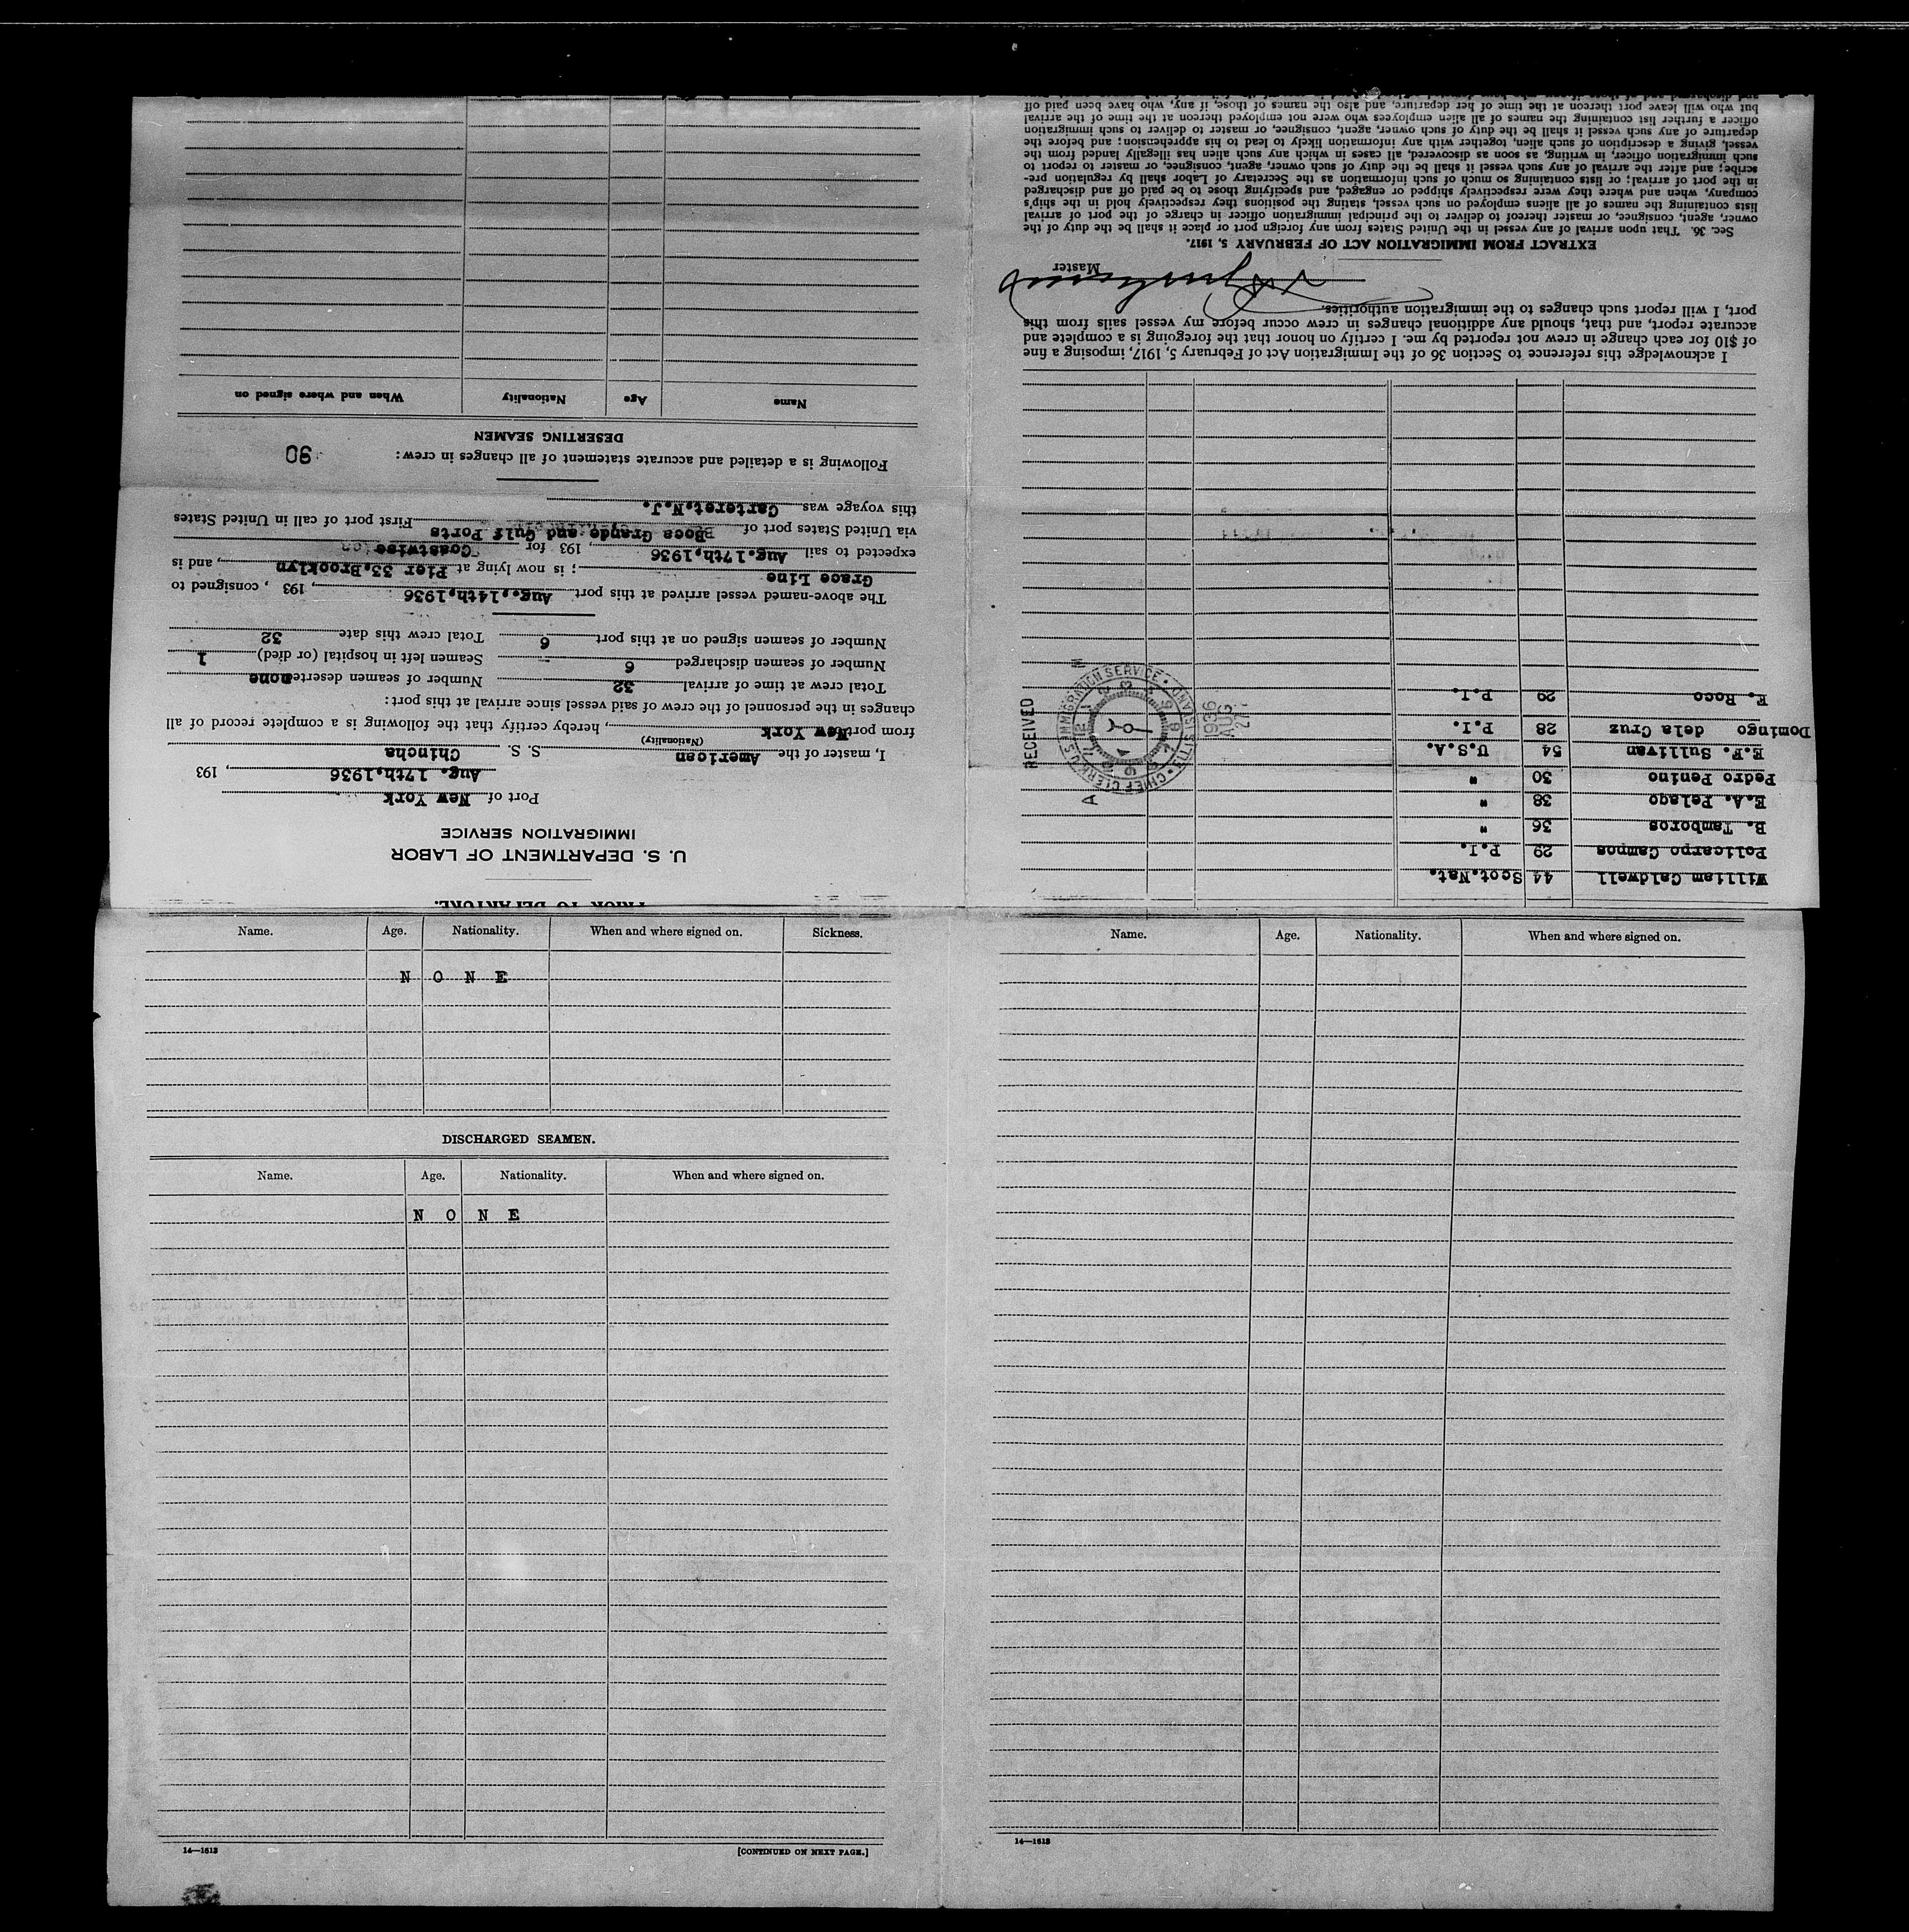 PRIOR TO DEPARTURE.
U. S. DEPARTMENT OF LABOR
IMMIGRATION SERVICE
Port of New York
Aug. 17th,1936, 193
I, master of the American S. S. Chincha
(Nationality)
from port New York, hereby certify that the following is a complete record of all
changes in the personnel of the crew of said vessel since arrival at this port:
Total crew at time of arrival 32 Number of seamen deserted none
Number of seamen discharged 6 Seamen left in hospital (or died) 1
Number of seamen signed on at this port 6 Total crew this date 32
The above-named vessel arrived at this port Aug.,14th,1936, 193 , consigned to
Grace Line ; is now lying at Pier 33,Brooklyn, and is
expected to sail Aug.17th,1936, 193 for Coastwise
via United States port of Boca Grande and Gulf Ports First port of call in United States
this voyage was Carteret.N.J.
Following is a detailed and accurate statement of all changes in crew: 90
DESERTING SEAMEN
Name Age Nationality When and where signed on
William Caldwell 44 Scot.Nat.
Policarpo Campos 29 P.I.
B. Tamboros 36 "
E.A. Pelago 38 "
Pedro Penino 30 "
E.F. Sullivan 54 U.S.A.
Domingo dela Cruz 28 P.I.
F. Roco 29 P.I.
RECEIVED
1936
AUG
27
A
M
CHIEF CLERK U.S. IMMIGRATION SERVICE · ELLIS ISLAND
I acknowledge this reference to Section 36 of the Immigration Act of February 5, 1917, imposing a fine
of $10 for each change in crew not reported by me. I certify on honor that the foregoing is a complete and
accurate report, and that, should any additional changes in crew occur before my vessel sails from this
port, I will report such changes to the immigration authorities.
Master
EXTRACT FROM IMMIGRATION ACT OF FEBRUARY 5, 1917.
Sec. 36. That upon arrival of any vessel in the United States from any foreign port or place it shall be the duty of the
owner, agent, consignee, or master thereof to deliver to the principal immigration officer in charge of the port of arrival
lists containing the names of all aliens employed on such vessel, stating the positions they respectively hold in the ship's
company, when and where they were respectively shipped or engaged, and specifying those to be paid off and discharged
in the port of arrival; or lists containing so much of such information as the Secretary of Labor shall by regulation pre-
scribe; and after the arrival of any such vessel it shall be the duty of such owner, agent, consignee, or master to report to
such immigration officer, in writing, as soon as discovered, all cases in which any such alien has illegally landed from the
vessel, giving a description of such alien, together with any information likely to lead to his apprehension; and before the
departure of any such vessel it shall be the duty of such owner, agent, consignee, or master to deliver to such immigration
officer a further list containing the names of all alien employees who were not employed thereon at the time of the arrival
but who will leave port thereon at the time of her departure, and also the names of those, if any, who have been paid off
Name. Age. Nationality. When and where signed on. Sickness.
N O N E
DISCHARGED SEAMEN.
Name. Age. Nationality. When and where signed on.
N O N E
14—1613 [CONTINUED ON NEXT PAGE.]
Name. Age. Nationality. When and where signed on.
14—1613